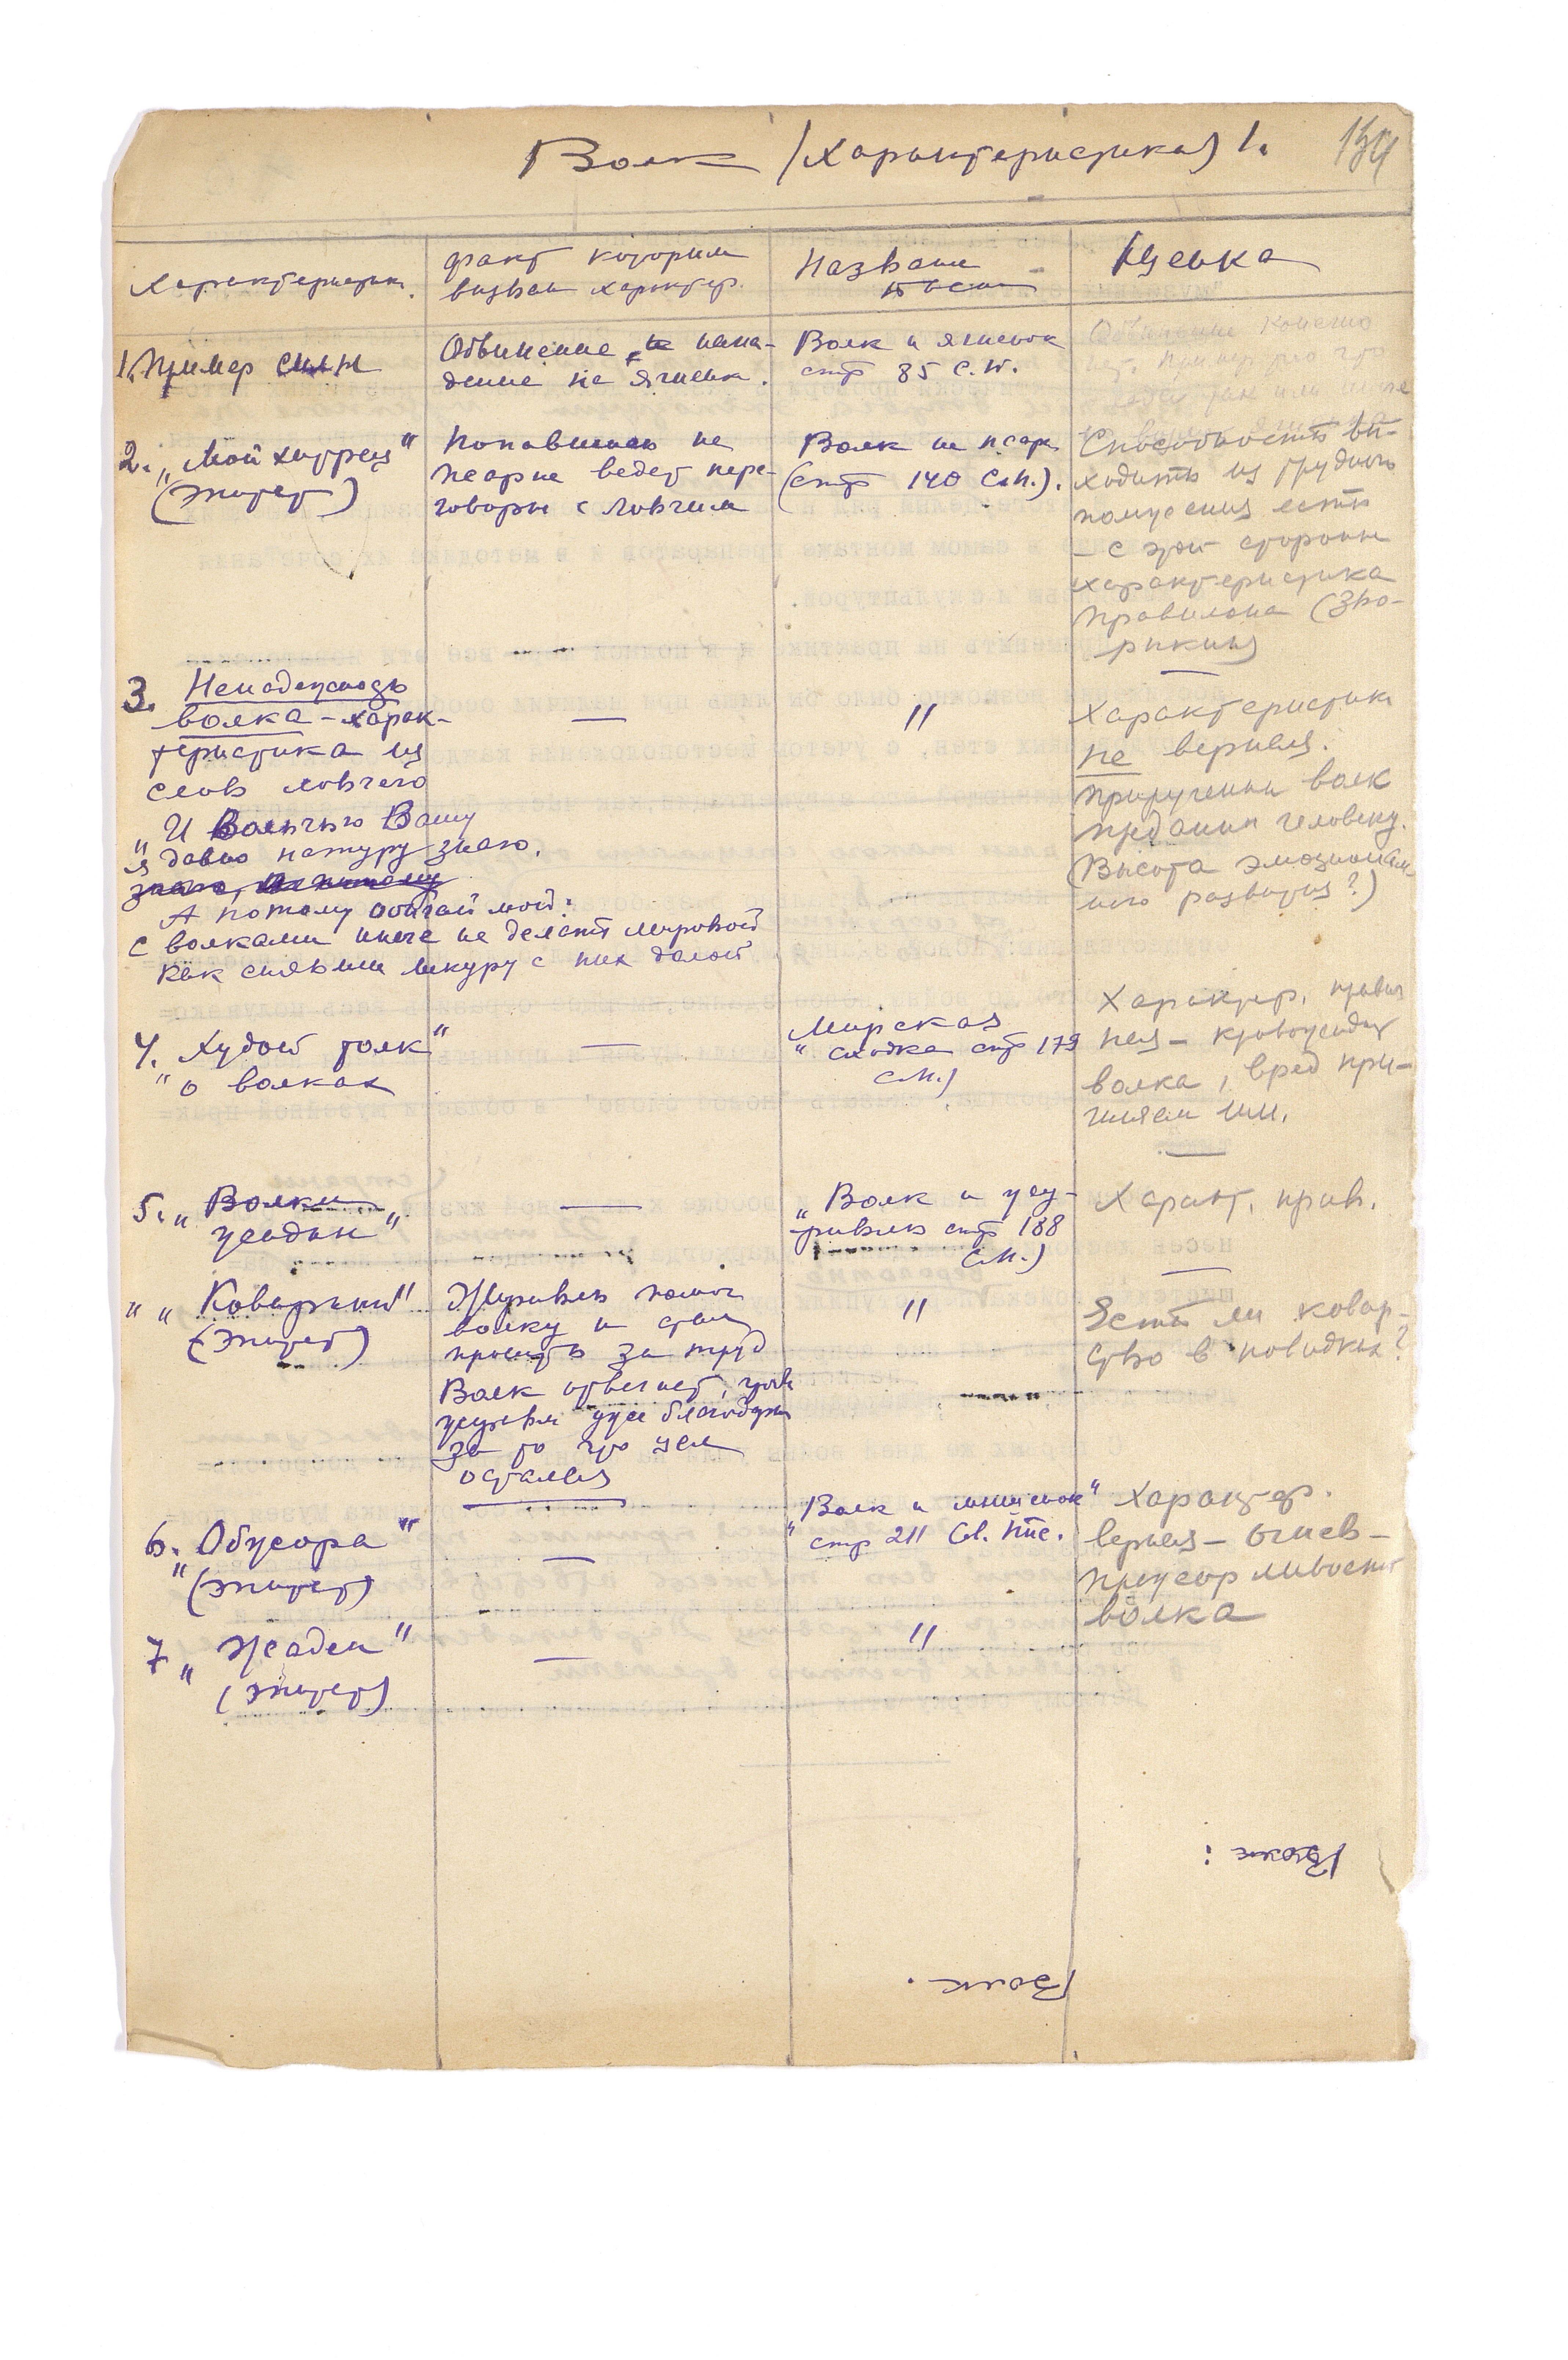 Волк /характеристика) 1.
134
Характеристик.
факт которым
вызван характер.
Название
басни
Оценка
1. Пример силы
Обвинение, и напа-
дение на ягненка.
Волк и ягненок
стр 85 С.П.
Обвинение конечно
нет.
2. „Мой хитрец"
(эпитет)
Попавшись на
псарне ведет пере-
говоры с ловчим
Волк на псарне
(стр 140 С.П.).
Способность вы-
ходить из трудного
положения есть
– с этой стороны
характеристика
правильна (Зво-
рыкин)
3. Ненадежность
волка – харак-
теристика из
слов ловчего
„И Волчью Вашу
я давно натуру знаю.
знаю, а потому
А потому обычай мой:
с волками иначе не делать мировой
как снявши шкуру с них долой
—
"
Характеристика
не верная.
прирученный волк
предан человеку.
(Высота эмоциональ-
ного развития?)
4. Худой толк"
„о волках
—
Мирская
„ сходка стр 179
С.П.)
Характер. правиль
ная – кровожадность
волка, вред при-
чиняем им.
5. „Волки
жадны"
—
„Волк и жу-
равль стр 188
С.П.)
Характ. прав.
" „Коварный"
(Эпитет)
Журавль помог
волку и стал
просить за труд
Волк отвечает, чтоб
журавль был благодарен
за то что цел
остался
"
Есть ли ковар-
ство в повадках?
6. Обжора"
„(эпитет)
—
„Волк и мышонок"
стр 211 С. П.
Характер.
верная –
прожорливость
волка
7 „Жаден"
(эпитет)
—
"
Волк:
Волк.